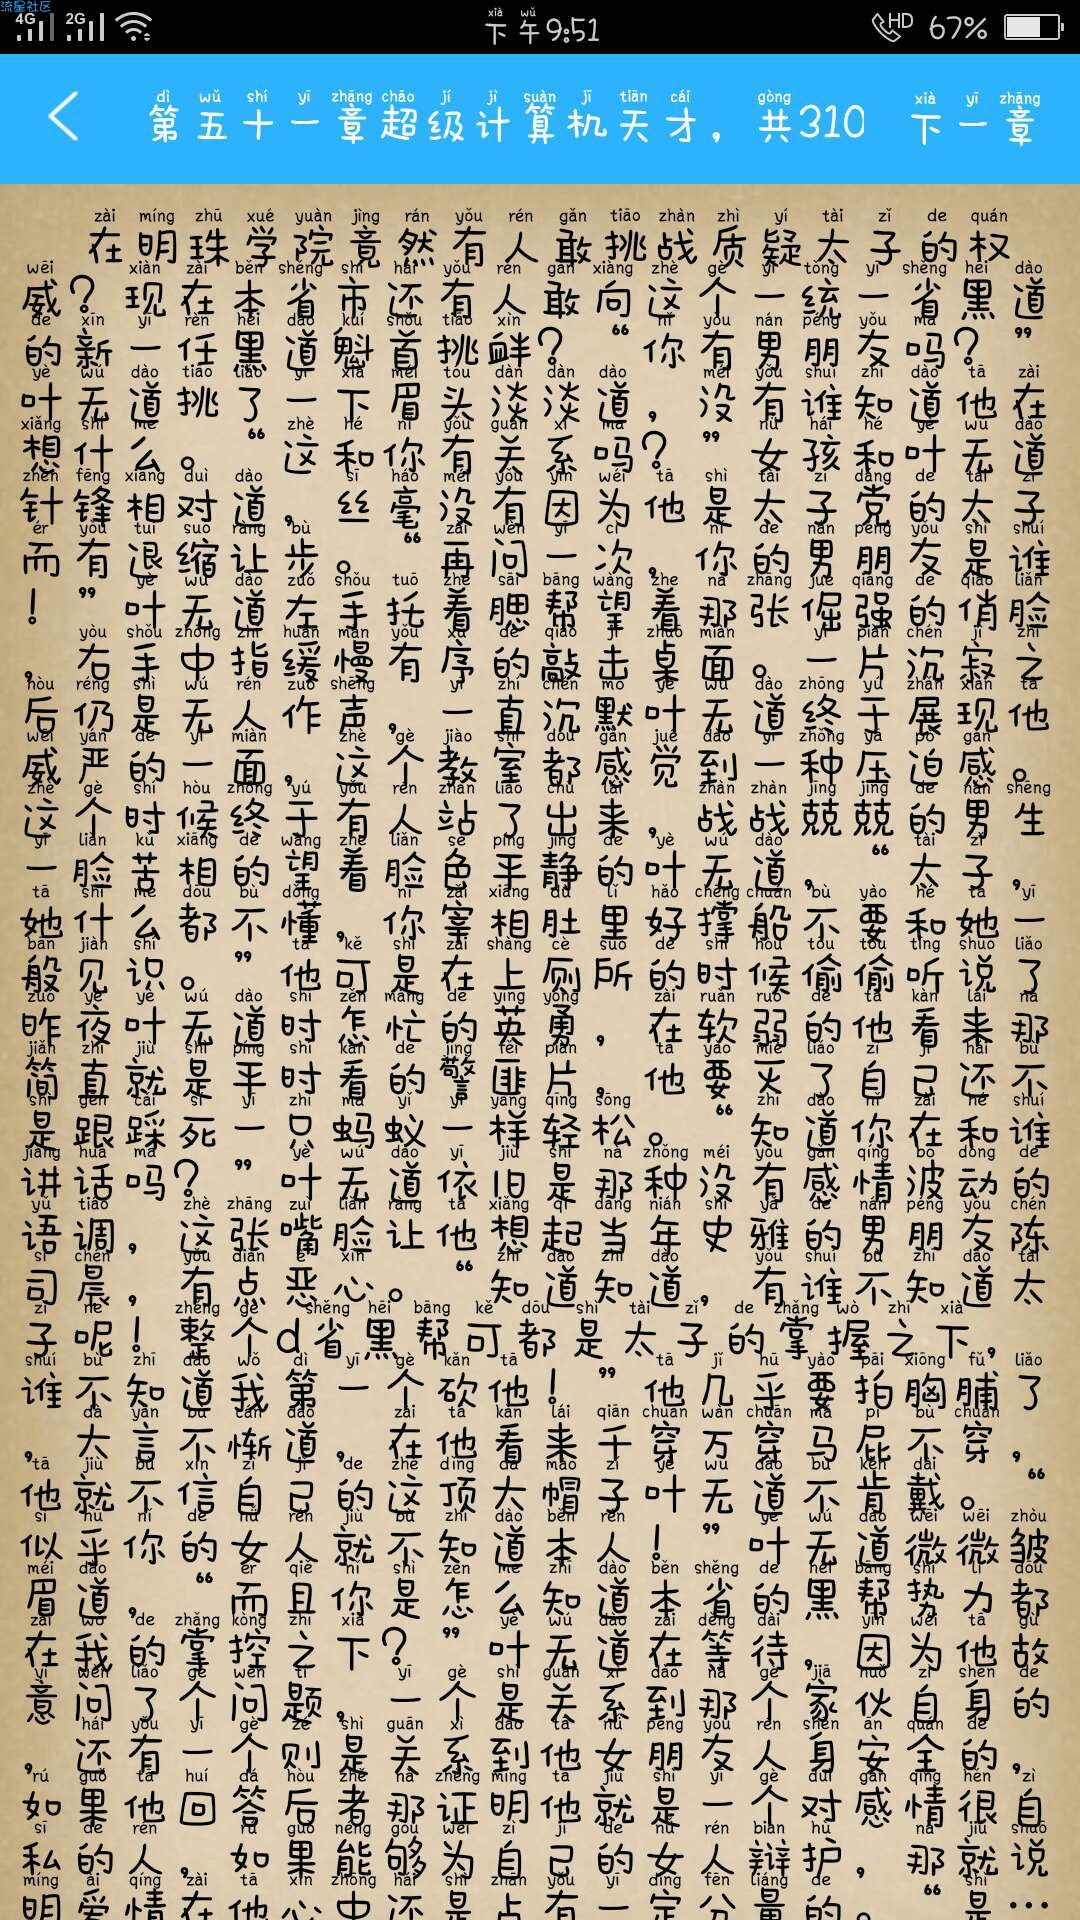 流星社区
4G 2G 下午9:51 HD 67%
第五十一章超级计算机天才，共310 下一章
在明珠学院竟然有人敢挑战质疑太子的权
威？现在本省市还有人敢向这个一统一省黑道
的新一任黑道魁首挑衅？“你有男朋友吗？”
叶无道挑了一下眉头淡淡道，没有谁知道他在
想什么。“这和你有关系吗？”女孩和叶无道
针锋相对道，丝毫没有因为他是太子党的太子
而有退缩让步。“再问一次，你的男朋友是谁
！”叶无道左手托着腮帮望着那张倔强的俏脸
，右手中指缓慢有序的敲击桌面。一片沉寂之
后仍是无人作声，一直沉默叶无道终于展现他
威严的一面，这个教室都感觉到一种压迫感。
这个时候终于有人站了出来，战战兢兢的男生
一脸苦相的望着脸色平静的叶无道，“太子，
她什么都不懂，你宰相肚里好撑船不要和她一
般见识。”他可是在上厕所的时候偷偷听说了
昨夜叶无道时怎忙的英勇，在软弱的他看来那
简直就是平时看的警匪片，他要灭了自己还不
是跟踩死一只蚂蚁一样轻松。“知道你在和谁
讲话吗？”叶无道依旧是那种没有感情波动的
语调，这张嘴脸让他想起当年史雅的男朋友陈
司晨，有点恶心。“知道知道，有谁不知道太
子呢！整个d省黑帮可都是太子的掌握之下，
谁不知道我第一个砍他！”他几乎要拍胸脯了
，大言不惭道，在他看来千穿万穿马屁不穿，
他就不信自己的这顶大帽子叶无道不肯戴。“
似乎你的女人就不知道本人！”叶无道微微皱
眉道，“而且你是怎么知道本省的黑帮势力都
在我的掌控之下？”叶无道在等待，因为他故
意问了个问题，一个是关系到那个家伙自身的
，还有一个则是关系到他女朋友人身安全的，
如果他回答后者那证明他就是一个对感情很自
私的人，如果能够为自己的女人辩护，那就说
明爱情在他心中还是占有一定分量的。“是…